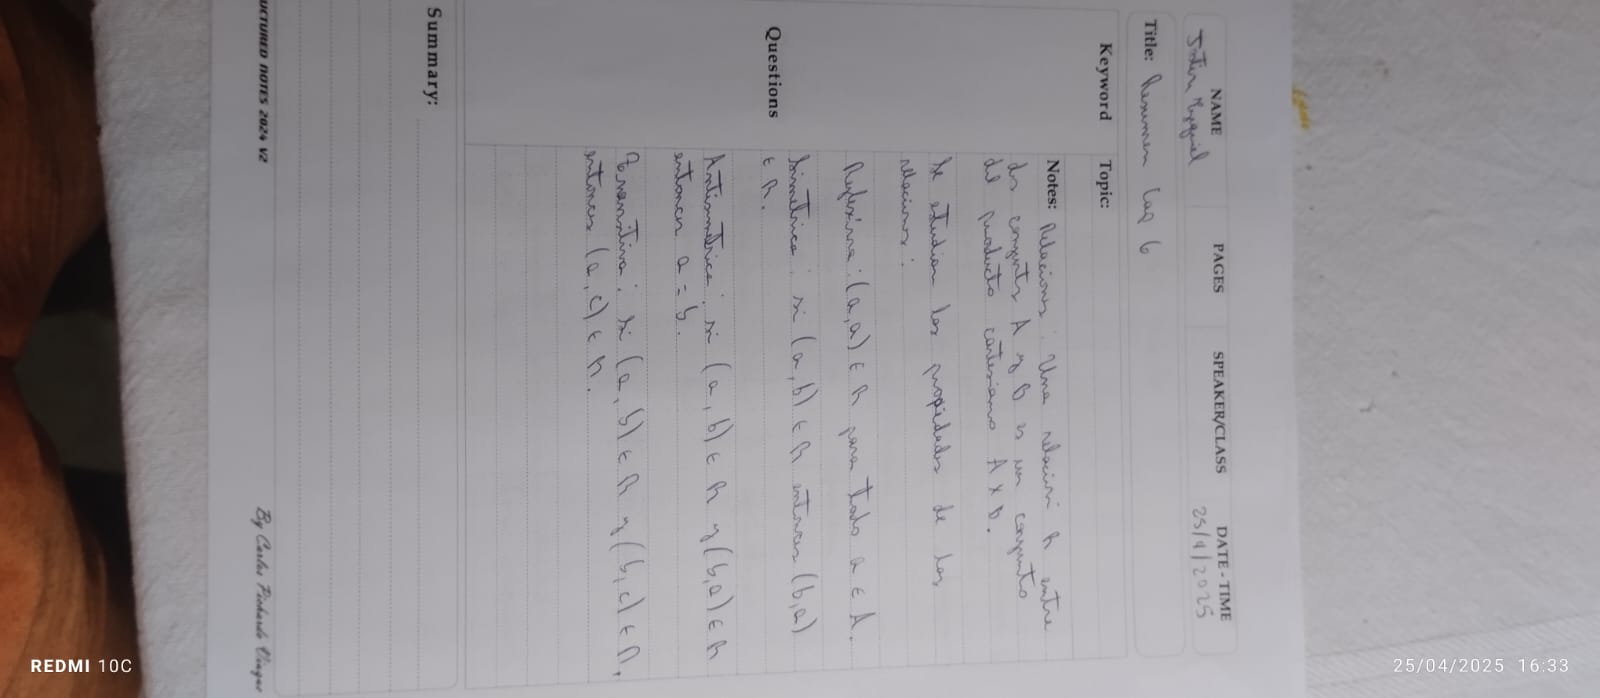 NAME PAGES SPEAKER/CLASS DATE - TIME
25/4/2025
Title: Resumen Cap 6
Keyword Topic:
Notes: Relaciones: Una relación R entre
ds conjuntos A y B es un conjunto
del producto cartesiano A x B.
Se estudian las propiedades de las
relaciones:
Reflexiva: (a,a) ∈ R para todo a ∈ A.
Questions
Simétrica: si (a,b) ∈ R entonces (b,a)
∈ R.
Antisimétrica: si (a,b) ∈ R y (b,a) ∈ R
entonces a = b.
Transitiva: si (a,b) ∈ R y (b,c) ∈ R,
entonces (a,c) ∈ R.
Summary:
UCTURED NOTES 2024 V2
By Carlos Pichardo Viuque
REDMI 10C
25/04/2025 16:33